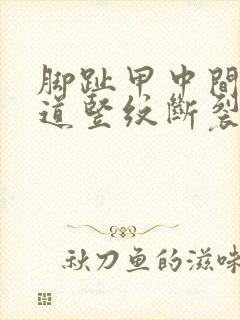 脚趾甲中間
道竪紋斷裂
秋刀鱼的滋味